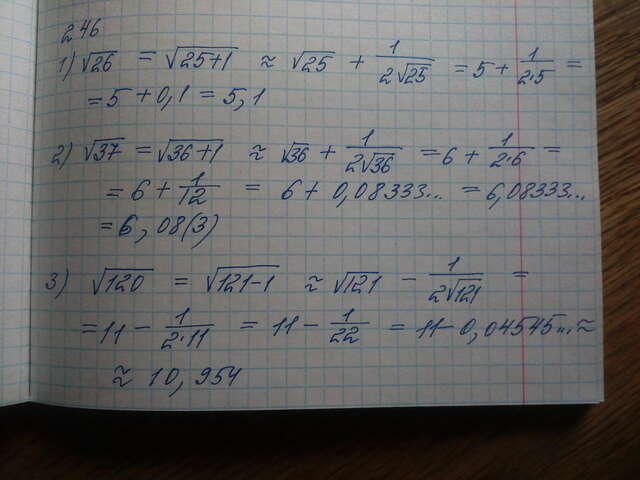 246
1) √26 = √25+1 ≈ √25 + 1/2√25 = 5 + 1/2·5 =
= 5 + 0,1 = 5,1
2) √37 = √36+1 ≈ √36 + 1/2√36 = 6 + 1/2·6 =
= 6 + 1/12 = 6 + 0,08333... = 6,08333...
= 6,08(3)
3) √120 = √121-1 ≈ √121 - 1/2√121 =
= 11 - 1/2·11 = 11 - 1/22 = 11 - 0,04545... ≈
≈ 10,954